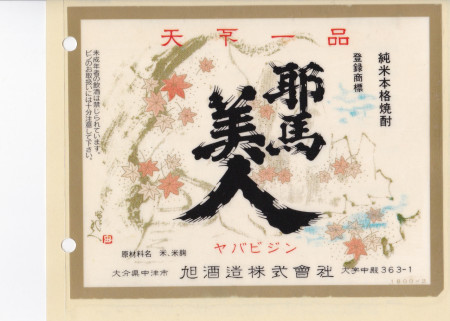 天下一品
純米本格焼酎
登録商標
耶馬
美人
ヤバビジン
未成年者の飲酒は禁じられています。
ビンのお取扱いには十分注意して下さい。
原材料名 米、米麹
大分県中津市 旭酒造株式會社 大字中殿363-1